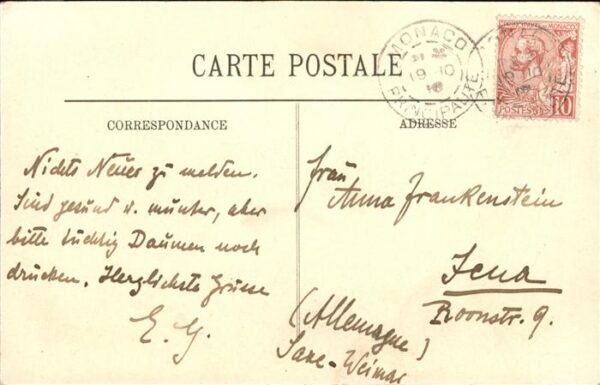 CARTE POSTALE
MONACO
19 10
PRINCIPAUTÉ
MONACO
POSTES
10
CORRESPONDANCE
Nichts Neues zu melden.
Sind gesund u. munter, aber
bitte tüchtig Daumen noch
drücken. Herzlichste Grüsse
E. G.
ADRESSE
Frau
Anna Frankenstein
Jena
Roonstr. 9.
(Allemagne)
Saxe-Weimar